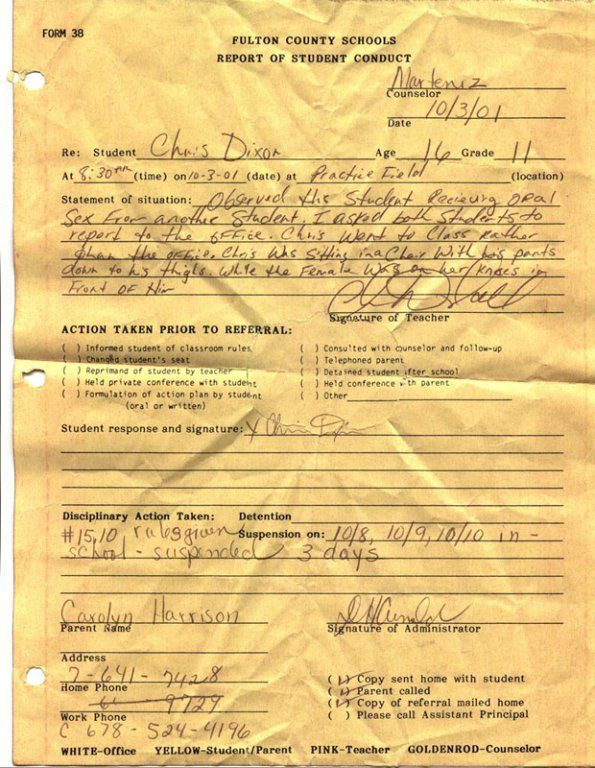 FORM 38
FULTON COUNTY SCHOOLS
REPORT OF STUDENT CONDUCT
Marteniz
Counselor
10/3/01
Date
Re: Student Chris Dixon Age 16 Grade 11
At 8:30 (time) on 10-3-01 (date) at Practice Field (location)
Statement of situation: Observed this Student Recieving oral
Sex From another Student. I asked both Students to
report to the office. Chris Went to Class rather
than the office. Chris Was Sitting in a Chair With his pants
down to his thighs. While the Female Was on her knees in
Front OF Him
Signature of Teacher
ACTION TAKEN PRIOR TO REFERRAL:
( ) Informed student of classroom rules
( ) Changed student's seat
( ) Reprimand of student by teacher
( ) Held private conference with student
( ) Formulation of action plan by student
(oral or written)
( ) Consulted with counselor and follow-up
( ) Telephoned parent
( ) Detained student after school
( ) Held conference with parent
( ) Other
Student response and signature: X Chris Dixon
Disciplinary Action Taken: Detention
#15,10, rules given Suspension on: 10/8, 10/9, 10/10 in-
school - suspended 3 days
Carolyn Harrison
Parent Name
Signature of Administrator
Address
7-641-7428
Home Phone
9729
Work Phone
C 678-524-4196
(✓) Copy sent home with student
(✓) Parent called
(✓) Copy of referral mailed home
( ) Please call Assistant Principal
WHITE-Office YELLOW-Student/Parent PINK-Teacher GOLDENROD-Counselor